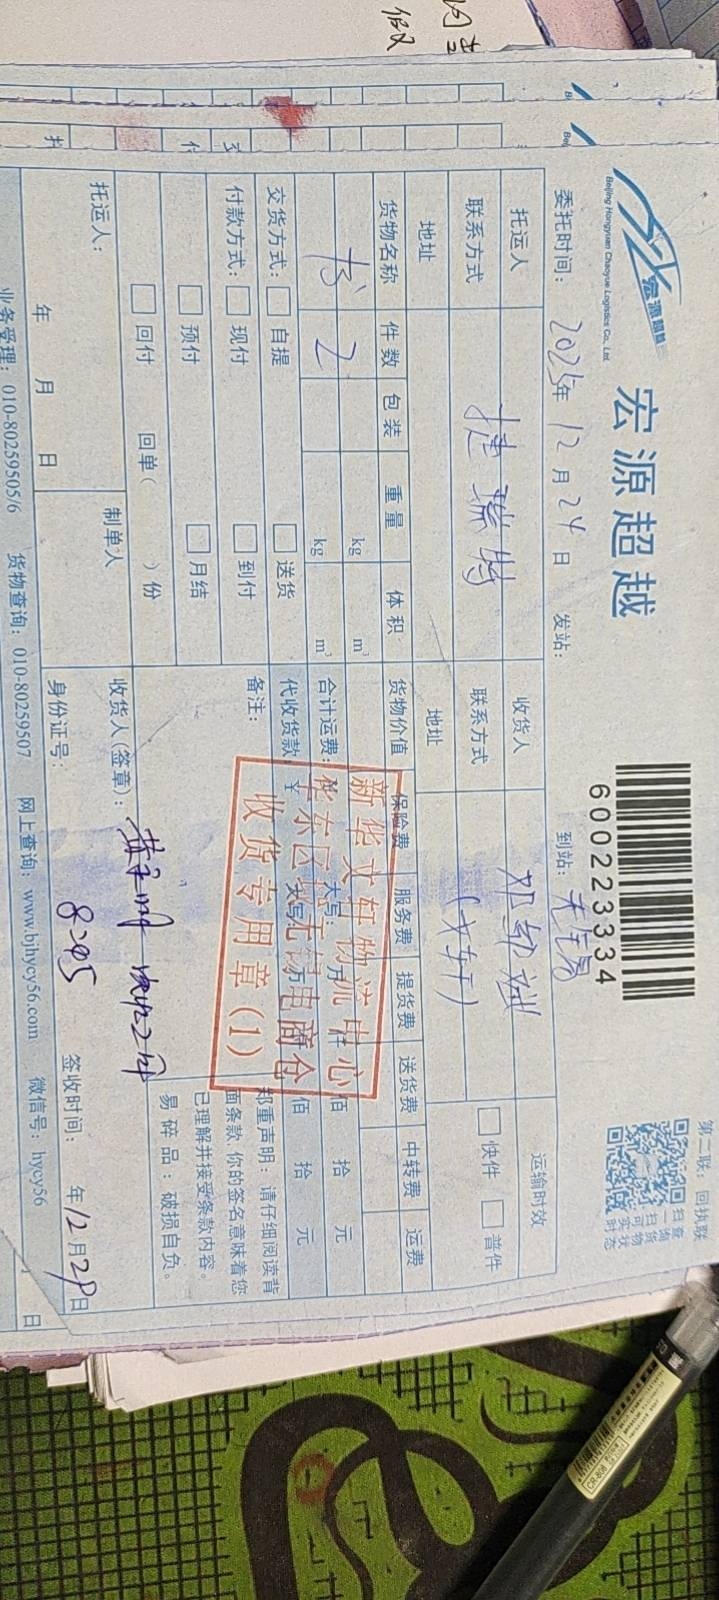 宏源超越
Beijing Hongyuan Chaoyue Logistics Co., Ltd.
600223334
第二联：回执联
扫查
一询
扫货
可物
实状
时态
委托时间：2025年12月24日 发站： 到站：无锡
托运人 收货人 邓 运输时效
联系方式 捷瑞特 联系方式 (文轩) 快件 普件
地址 地址
货物名称 件数 包装 重量 体积 货物价值 保险费 服务费 提货费 送货费 中转费 运费
书 2 kg m³
kg m³ 合计运费： 大写： 万 仟 佰 拾 元
交货方式： 自提 送货 代收货款：￥ 大写： 万 仟 佰 拾 元
付款方式： 现付 到付 备注：
预付 月结
回付 回单（ ）份
新华文轩物流中心
华东区域无锡电商仓
收货专用章(1)
郑重声明：请仔细阅读背
面条款 你的签名意味着您
已理解并接受条款内容。
易碎品：破损自负。
托运人： 制单人 收货人(签章)：
年 月 日 身份证号： 8205 签收时间： 年12月29日
业务受理：010-80259505/6 货物查询：010-80259507 网上查询：www.bjhycy56.com 微信号：hycy56
日